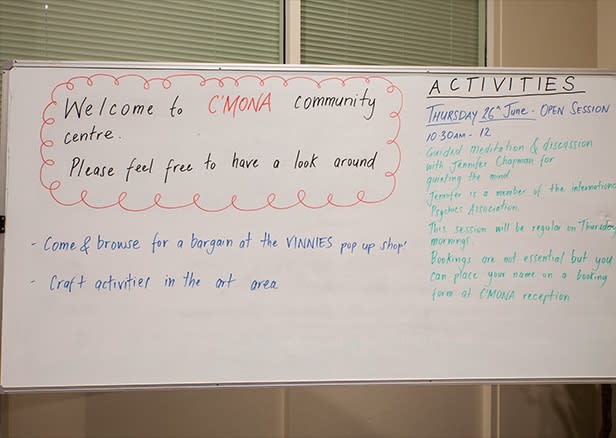 Welcome to C'MONA community
centre.
Please feel free to have a look around
- Come & browse for a bargain at the VINNIES pop up shop'
- Craft activities in the art area
ACTIVITIES
THURSDAY 26th June - OPEN SESSION
10.30am - 12
Guided Meditation & discussion
with Jennifer Chapman for
quieting the mind.
Jennifer is a member of the international
Psychics Association.
This session will be regular on Thursday
mornings.
Bookings are not essential but you
can place your name on a booking
form at C'MONA reception